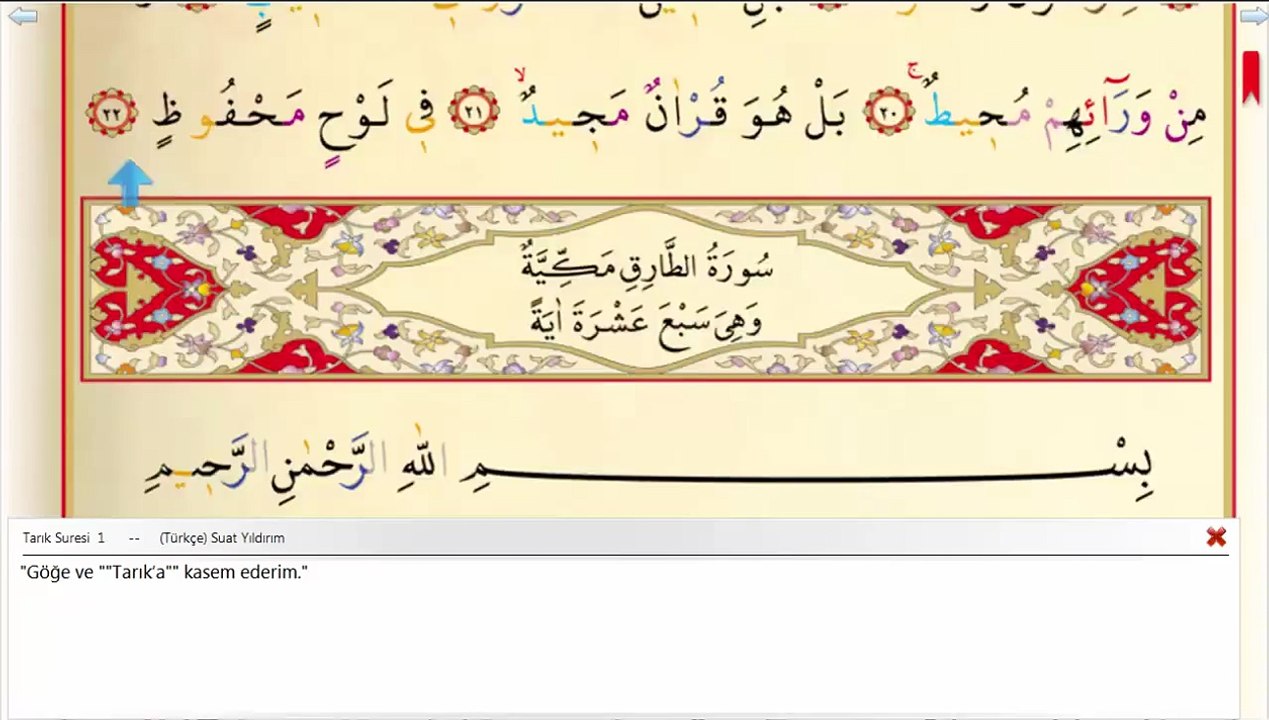 مِنْ وَرَٓائِهِمْ مُحٖيطٌۚ ﴿٢٠﴾ بَلْ هُوَ قُرْاٰنٌ مَجٖيدٌۙ ﴿٢١﴾ فٖى لَوْحٍ مَحْفُوظٍ ﴿٢٢﴾
سُورَةُ الطَّارِقِ مَكِّيَّةٌ
وَهِىَ سَبْعَ عَشْرَةَ اٰيَةً
بِسْمِ اللّٰهِ الرَّحْمٰنِ الرَّحٖيمِ
Tarık Suresi 1 -- (Türkçe) Suat Yıldırım
"Göğe ve ""Tarık’a"" kasem ederim."